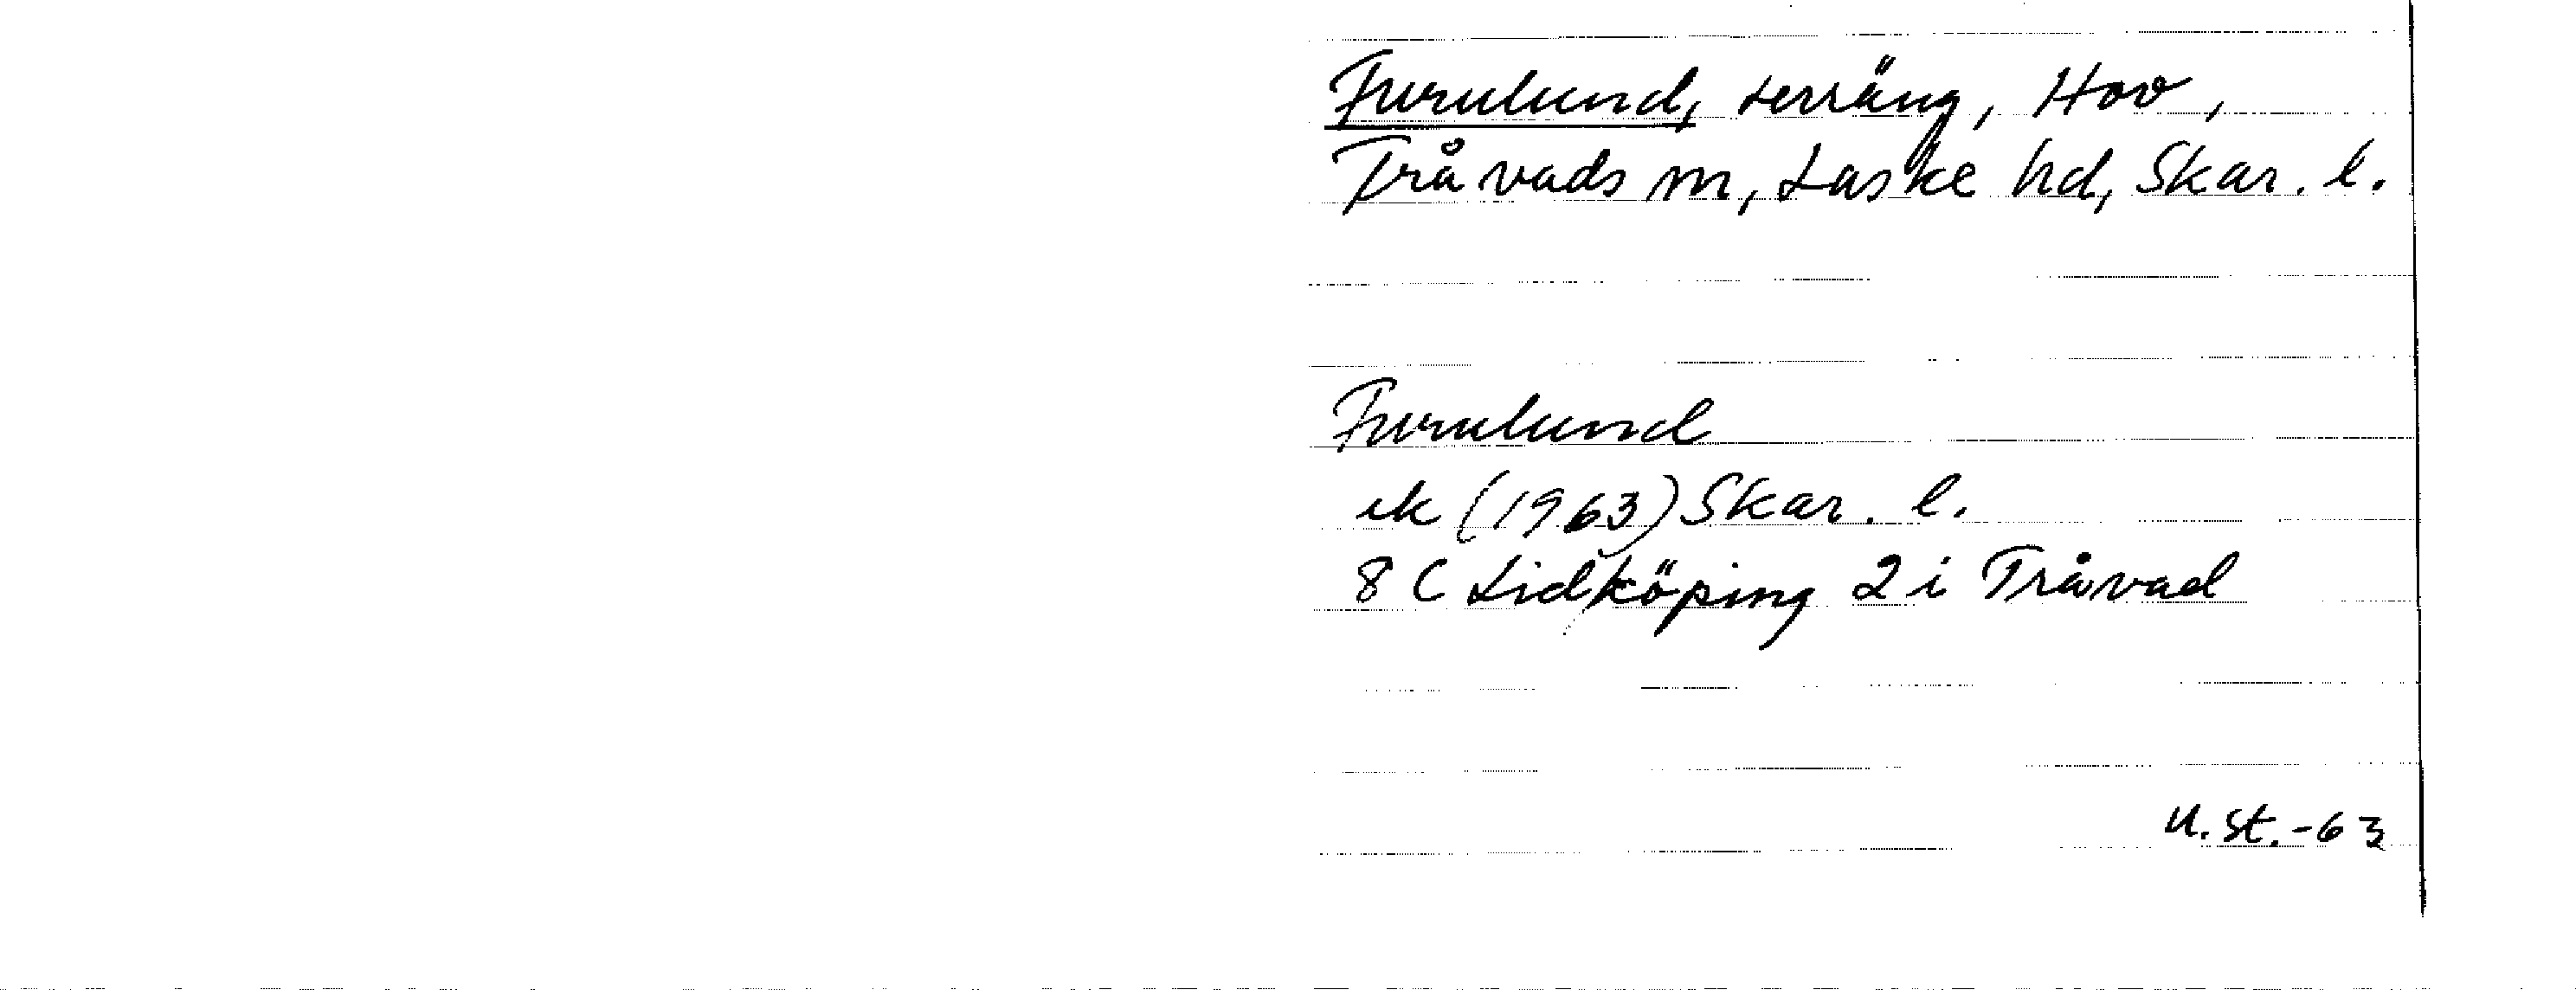 Furulund, terräng, Hov,
Tråvads m, Laske hd, Skar. l.
Furulund
ek (1963) Skar. l.
8 C Lidköping 2 i Tråvad
U. St. -63